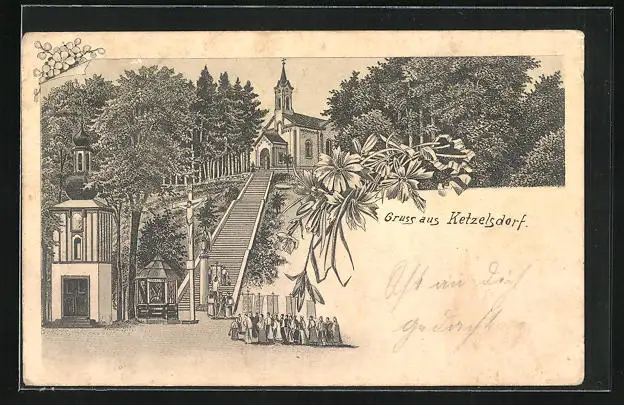 Gruss aus Ketzelsdorf.
Oft an dich
gedacht